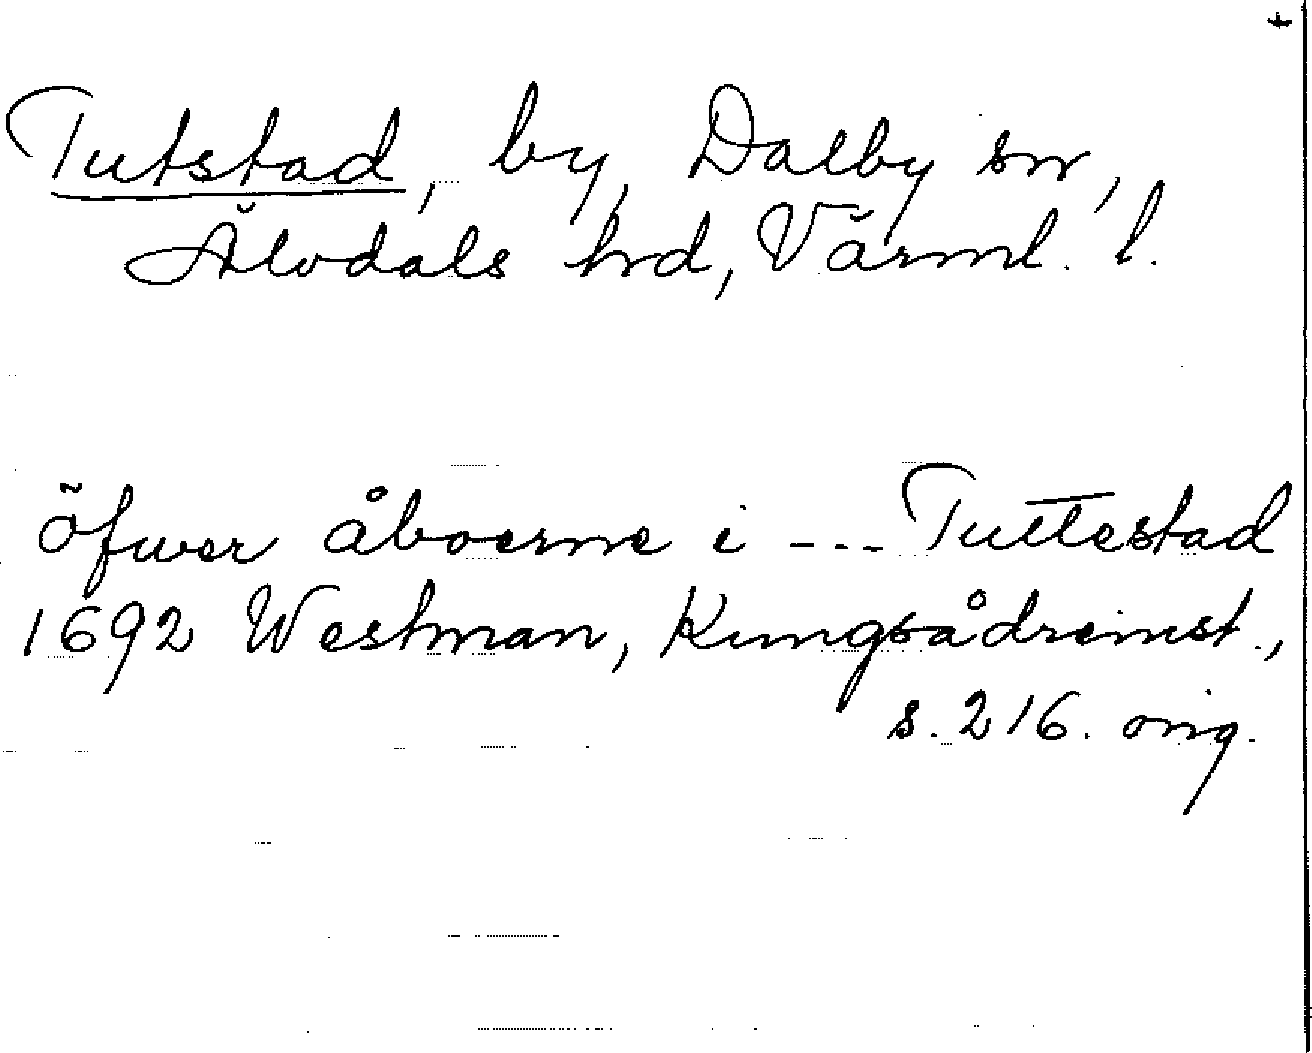 t
Tutstad, by, Dalby sn,
Älvdals hrd, Värml. l.
öfwer åboerne i --- Tuttestad
1692 Westman, Kungsådreinst.,
s. 216. orig.